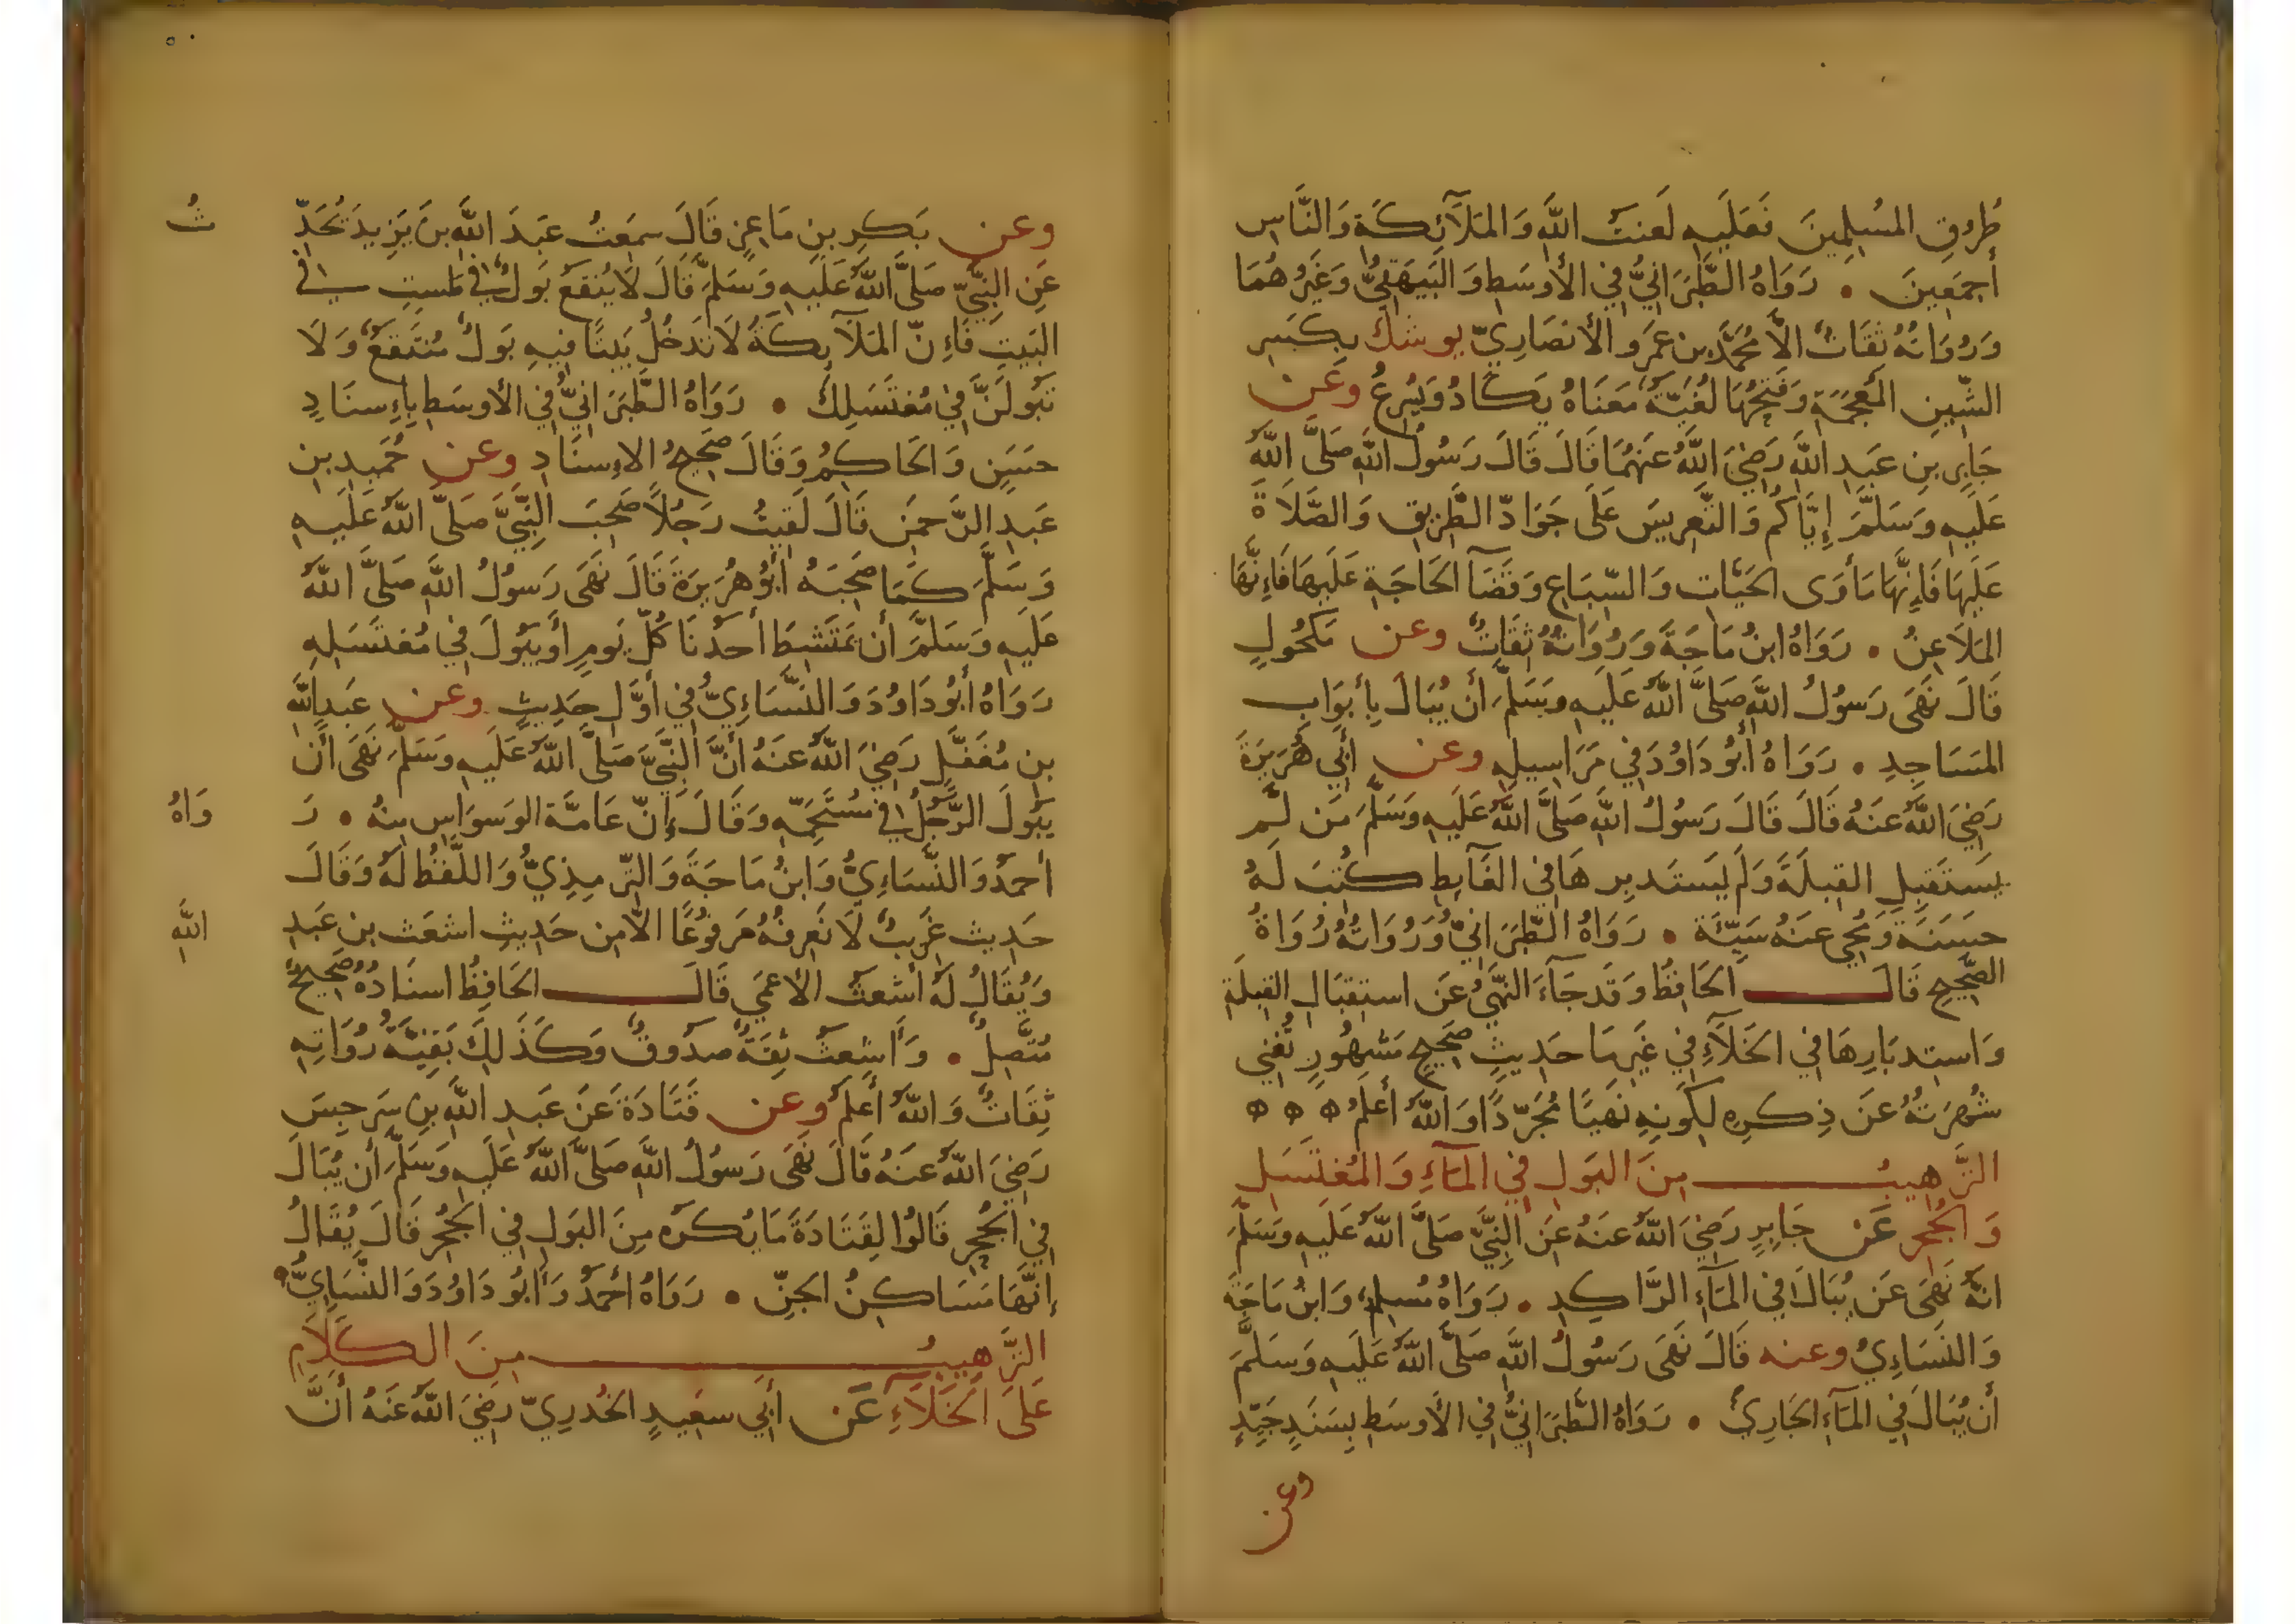 طُرُقِ المُسْلِمِينَ فَعَلَيهِ لَعنَتُ اللَّهِ وَالمَلَآئِكَةِ وَالنَّاسِ
أَجمَعِينَ • رَوَاهُ الطَّبَرَانِيُّ فِي الأَوسَطِ وَالبَيهَقِيُّ وَغَيرُهُمَا
وَرُوَاتُهُ ثِقَاتٌ الَّا مُحَمَّدَ بنِ عَمرٍو الأَنصَارِيّ يوشك بِكَسرِ
الشِّينِ المُعجَمَةِ وَفَتحِهَا لُغَيَّةٌ مَعنَاهُ يَكَادُ وَيُسرِعُ وعَن
جَابِرِ بنِ عَبدِ اللَّهِ رَضِيَ اللَّهُ عَنهُمَا قَالَ قَالَ رَسُولُ اللَّهِ صَلَّى اللَّهُ
عَلَيهِ وَسَلَّمَ إِيَّاكُم وَالتَّعرِيسَ عَلَى جَوَادّ الطَّرِيقِ وَالصَّلَاةَ
عَلَيهَا فَإِنَّهَا مَأوَى الحَيَّاتِ وَالسِّبَاعِ وَقَضَآ الحَاجَةِ عَلَيهَا فَإِنَّهَا
المَلَاعِنُ • رَوَاهُ ابنُ مَاجَةَ وَرُوَاتُهُ ثِقَاتٌ وعن مَكحُولٍ
قَالَ نَهَى رَسُولُ اللَّهِ صَلَّى اللَّهُ عَلَيهِ وَسَلَّمَ أَن يُبَالَ بِأَبوَابِ
المَسَاجِدِ • رَوَاهُ أَبُو دَاوُدَ فِي مَرَاسِيلِهِ وعن أَبِي هُرَيرَةَ
رَضِيَ اللَّهُ عَنهُ قَالَ قَالَ رَسُولُ اللَّهِ صَلَّى اللَّهُ عَلَيهِ وَسَلَّمَ مَن لَّم
يَستَقبِلِ القِبلَةَ وَلَم يَستَدبِرهَا فِي الغَآيِطِ كُتِبَ لَهُ
حَسَنَةٌ وَمُحِي عَنهُ سَيِّئَة • رَوَاهُ الطَّبَرَانِيُّ وَرُوَاتُهُ رُوَاةُ
الصَّحِيحِ قَالَ الحَافِظُ وَقَد جَآءَ النَّهيُ عَن استِقبَالِ القِبلَةِ
وَاستِدبَارِهَا فِي الخَلَآءِ فِي غَيرِ مَا حَدِيثٍ صَحِيحٍ مَشهُورٍ تُغنِي
شُهرَتُهُ عَن ذِكرِهِ لِكَونِهِ نَهيًا مُجَرَّدًا وَاللَّهُ أَعلَمُ ه ه ه
التَّرهِيبُ مِنَ البَولِ فِي المَآءِ وَالمُغتَسَلِ
وَالجُحرِ عَن جَابِرٍ رَضِيَ اللَّهُ عَنهُ عَنِ النَّبِيِّ صَلَّى اللَّهُ عَلَيهِ وَسَلَّمَ
انَّهُ نَهَى عَن يُبَالَ فِي المَآءِ الرَّاكِدِ • رَوَاهُ مُسلِمٌ وَابنُ مَاجَةَ
وَالنَّسَاءِيُ وعنه قَالَ نَهَى رَسُولُ اللَّهِ صَلَّى اللَّهُ عَلَيهِ وَسَلَّمَ
أَن يُبَالَ فِي المَآءِ الجَارِئ • رَوَاهُ الطَّبَرَانِيُّ فِي الأَوسَطِ بِسَنَدٍ جَيِّدٍ
وعن
وعن بَكرِ بنِ مَاعِزٍ قَالَ سَمِعتُ عَبدَ اللَّهِ بنَ يَزِيدَ يُحَدِّ ثُ
عَنِ النَّبِيِّ صَلَّى اللَّهُ عَلَيهِ وَسَلَّمَ قَالَ لَا يُنقَعُ بَولٌ فِي طَستٍ فِي
البَيتِ فَإِنّ المَلَآيِكَةُ لَا تَدخُلُ بَيتًا فِيهِ بَولٌ مُنتَقَعٌ وَلَا
تَبُولَنَّ فِي مُغتَسَلِكَ • رَوَاهُ الطَّبَرَانِيُّ فِي الأَوسَطِ بِإِسنَادٍ
حَسَنٍ وَالحَاكِمُ وَقَالَ صَحِيحُ الاِسنَادِ وعن حُمَيدِ بنِ
عَبدِ الرَّحمَنِ قَالَ لَقِيتُ رَجُلًا صَحِبَ النَّبِيَّ صَلَّى اللَّهُ عَلَيهِ
وَسَلَّمَ كَمَا صَحِبَهُ أَبُو هُرَيرَةَ قَالَ نَهَى رَسُولُ اللَّهِ صَلَّى اللَّهُ
عَلَيهِ وَسَلَّمَ أَن يَمتَشِطَ أَحَدُنَا كُلّ يَومٍ أَو يَبُولَ فِي مُغتَسَلِهِ
رَوَاهُ أَبُو دَاوُدَ وَالنَّسَاءِيُّ فِي أَوَّلِ حَدِيثٍ وعن عَبدِ اللَّهِ
بنِ مُغَفَّلٍ رَضِيَ اللَّهُ عَنهُ أَنَّ النَّبِيَّ صَلَّى اللَّهُ عَلَيهِ وَسَلَّمَ نَهَى أَن
يَبُولَ الرَّجُلُ فِي مُستَحَمِّهِ وَقَالَ إِنّ عَامَّةَ الوَسوَاسِ مِنهُ • رَ وَاهُ
أَحمَدُ وَالنَّسَاءِيُّ وَابنُ مَاجَةَ وَالتِّرمِذِيُّ وَاللَّفظُ لَهُ وَقَالَ
حَدِيث غَرِيبٌ لَا نَعرِفُهُ مَرفُوعًا الَّا مِن حَدِيثِ اشعَث بنِ عَبدِ اللَّهِ
وَيُقَالُ لَهُ أَشعَثُ الأَعمَي قَالَ الحَافِظُ اسنَادُهُ صَحِيحٌ
مُتَّصِلٌ • وَأَشعَثُ ثِقَةٌ صَدُوقٌ وَكَذَلِكَ بَقِيَّةُ رُوَاتِهِ
ثِقَاتٌ وَاللَّهُ أَعلَمُ وعن قَتَادَةَ عَن عَبدِ اللَّهِ بنِ سَرجِسَ
رَضِيَ اللَّهُ عَنهُ قَالَ نَهَى رَسُولُ اللَّهِ صَلَّى اللَّهُ عَلَيهِ وَسَلَّمَ أَن يُبَالَ
فِي الجُحرِ قَالُوا لِقَتَادَةَ مَا يُكرَه مِنَ البَولِ فِي الجُحرِ قَالَ يُقَالُ
إِنَّهَا مَسَاكِنُ الجِنِّ • رَوَاهُ أَحمَدُ وَأَبُو دَاوُدَ وَالنَّسَايِيُّ •
التَّرهِيبُ مِنَ الكَلَامِ
عَلَى الخَلَآءِ عَن أَبِي سَعِيدٍ الخُدرِيّ رَضِيَ اللَّهُ عَنهُ أَنَّ